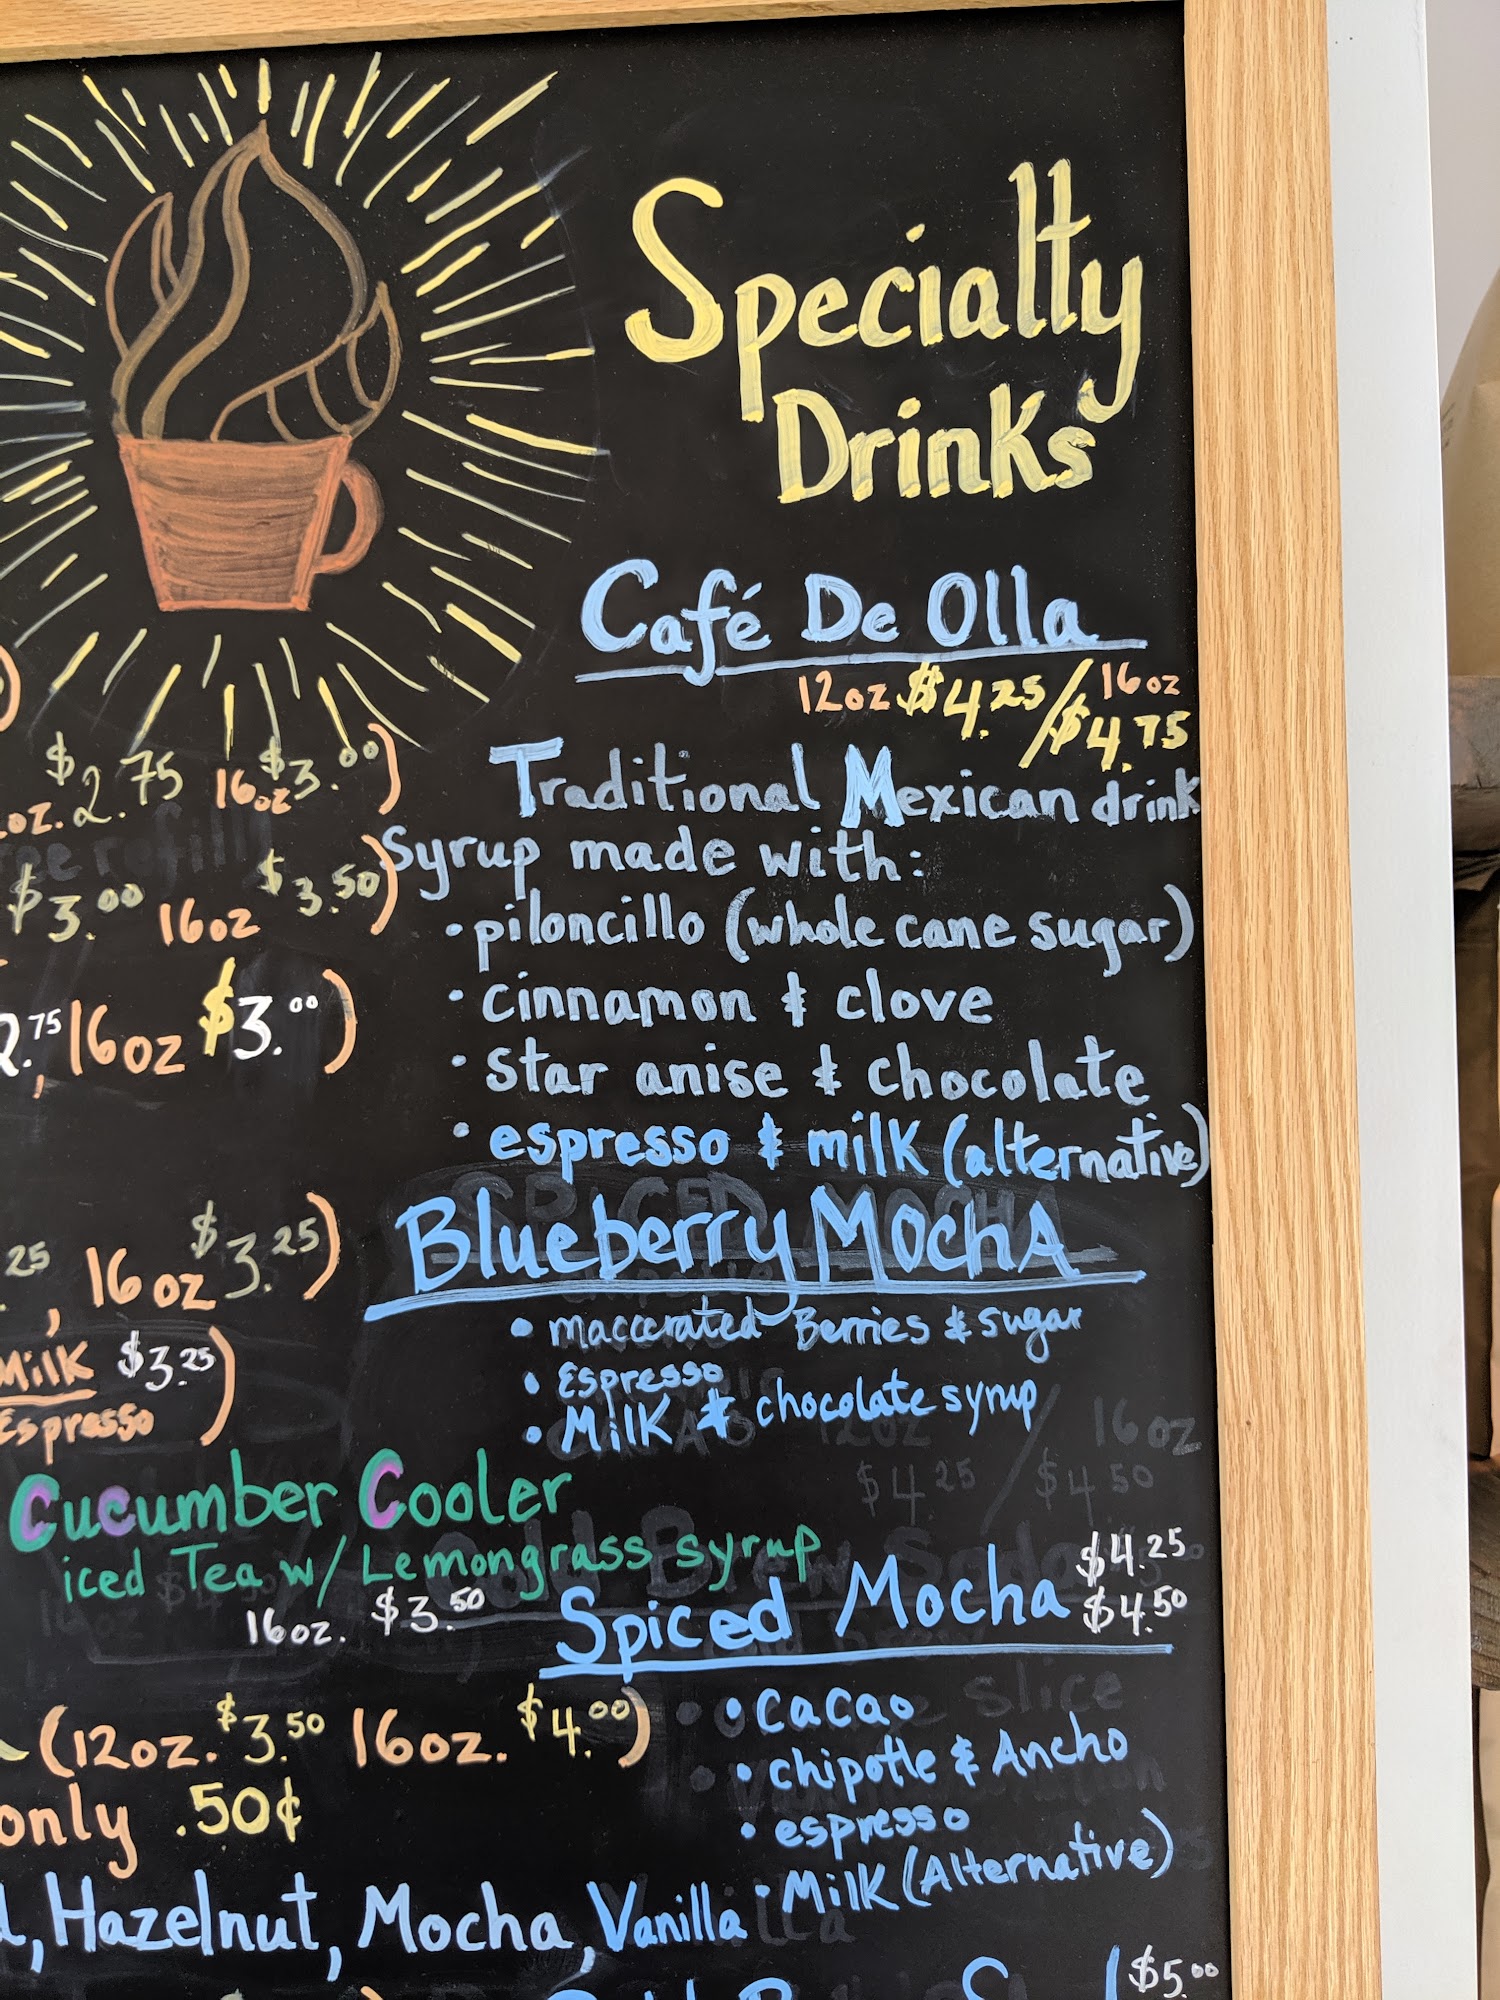 Specialty
Drinks
Café De Olla
12oz $4.25/16oz $4.75
Traditional Mexican drink
Syrup made with:
• piloncillo (whole cane sugar)
• cinnamon & clove
• star anise & chocolate
• espresso & milk (alternative)
Blueberry MochA
• maccerated Berries & sugar
• Espresso
• Milk & chocolate syrup
Spiced Mocha $4.25
$4.50
• cacao
• chipotle & Ancho
• espresso
• Milk (Alternative)
$5.00
)
oz. $2.75 16oz $3.00)
$3.00 16oz $3.50)
2.75, 16oz $3.00)
.25, 16oz $3.25)
Milk $3.25)
Espresso
Cucumber Cooler
iced Tea w/ Lemongrass syrup
16oz. $3.50
(12oz. $3.50 16oz. $4.00)
only .50¢
, Hazelnut, Mocha, Vanilla